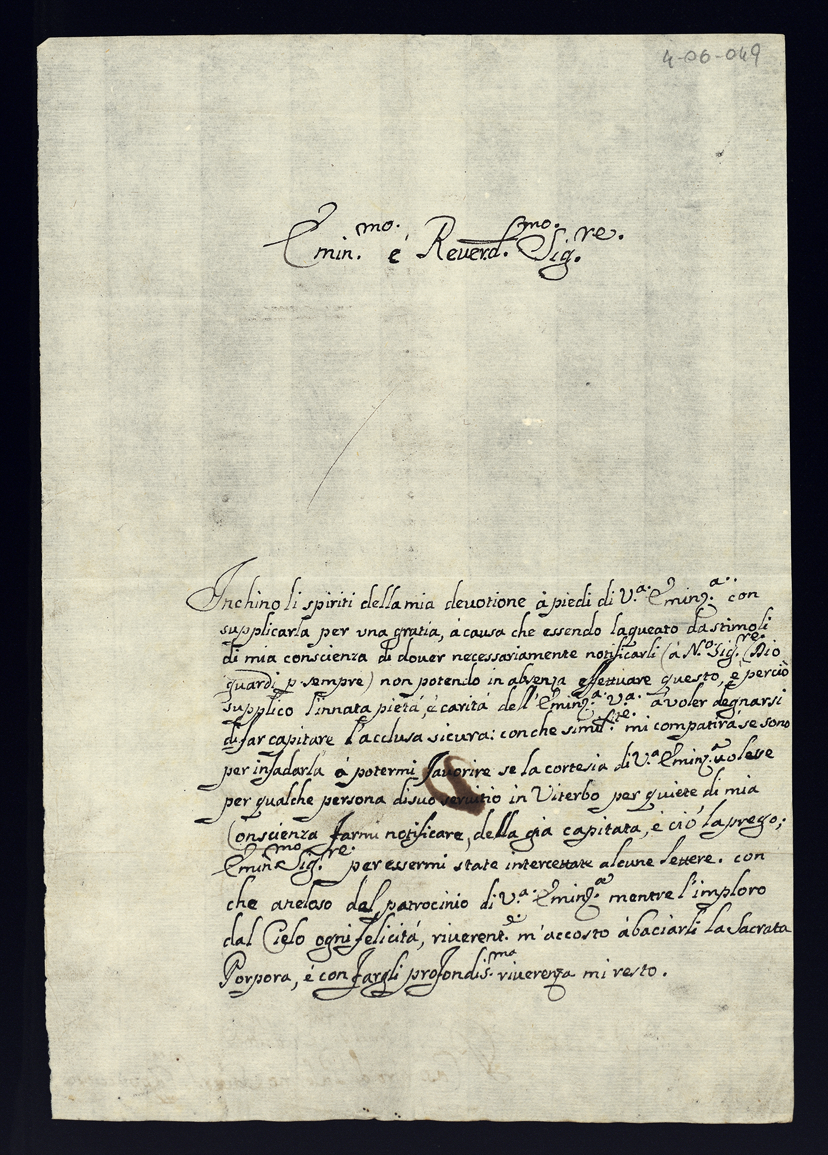 4-06-049
Emin.mo é Reverd.mo Sig.re
Inchino li spiriti della mia devotione à piedi di V.a Eminz.a con
supplicarla per vna gratia, à causa che essendo laqueato da stimoli
di mia conscienza di dover necessariamente notificarli (à N.o Sig.re (Dio
guardi p sempre) non potendo in absenza effettuare questo, è perciò
supplico l'innata pietá, é caritá dell'Eminz.a V.a à voler degnarsi
di far capitare l'acclusa sicura: con che simil.te mi compatirá se sono
per infadarla à potermi favorire se la cortesia di V.a Eminz.a volesse
per qualche persona di suo servitio in Viterbo per quiete di mia
Conscienza farmi notificare, della giá capitata, é ció la prego;
Emin.mo Sig.re per essermi state intercettate alcune lettere. con
che aneloso del patrocinio di V.a Eminz.a mentre l'imploro
dal Cielo ogni felicitá, riverent.e m'accosto à baciarli la Sacrata
Porpora, é con fargli profondis.ma riverenza mi resto.